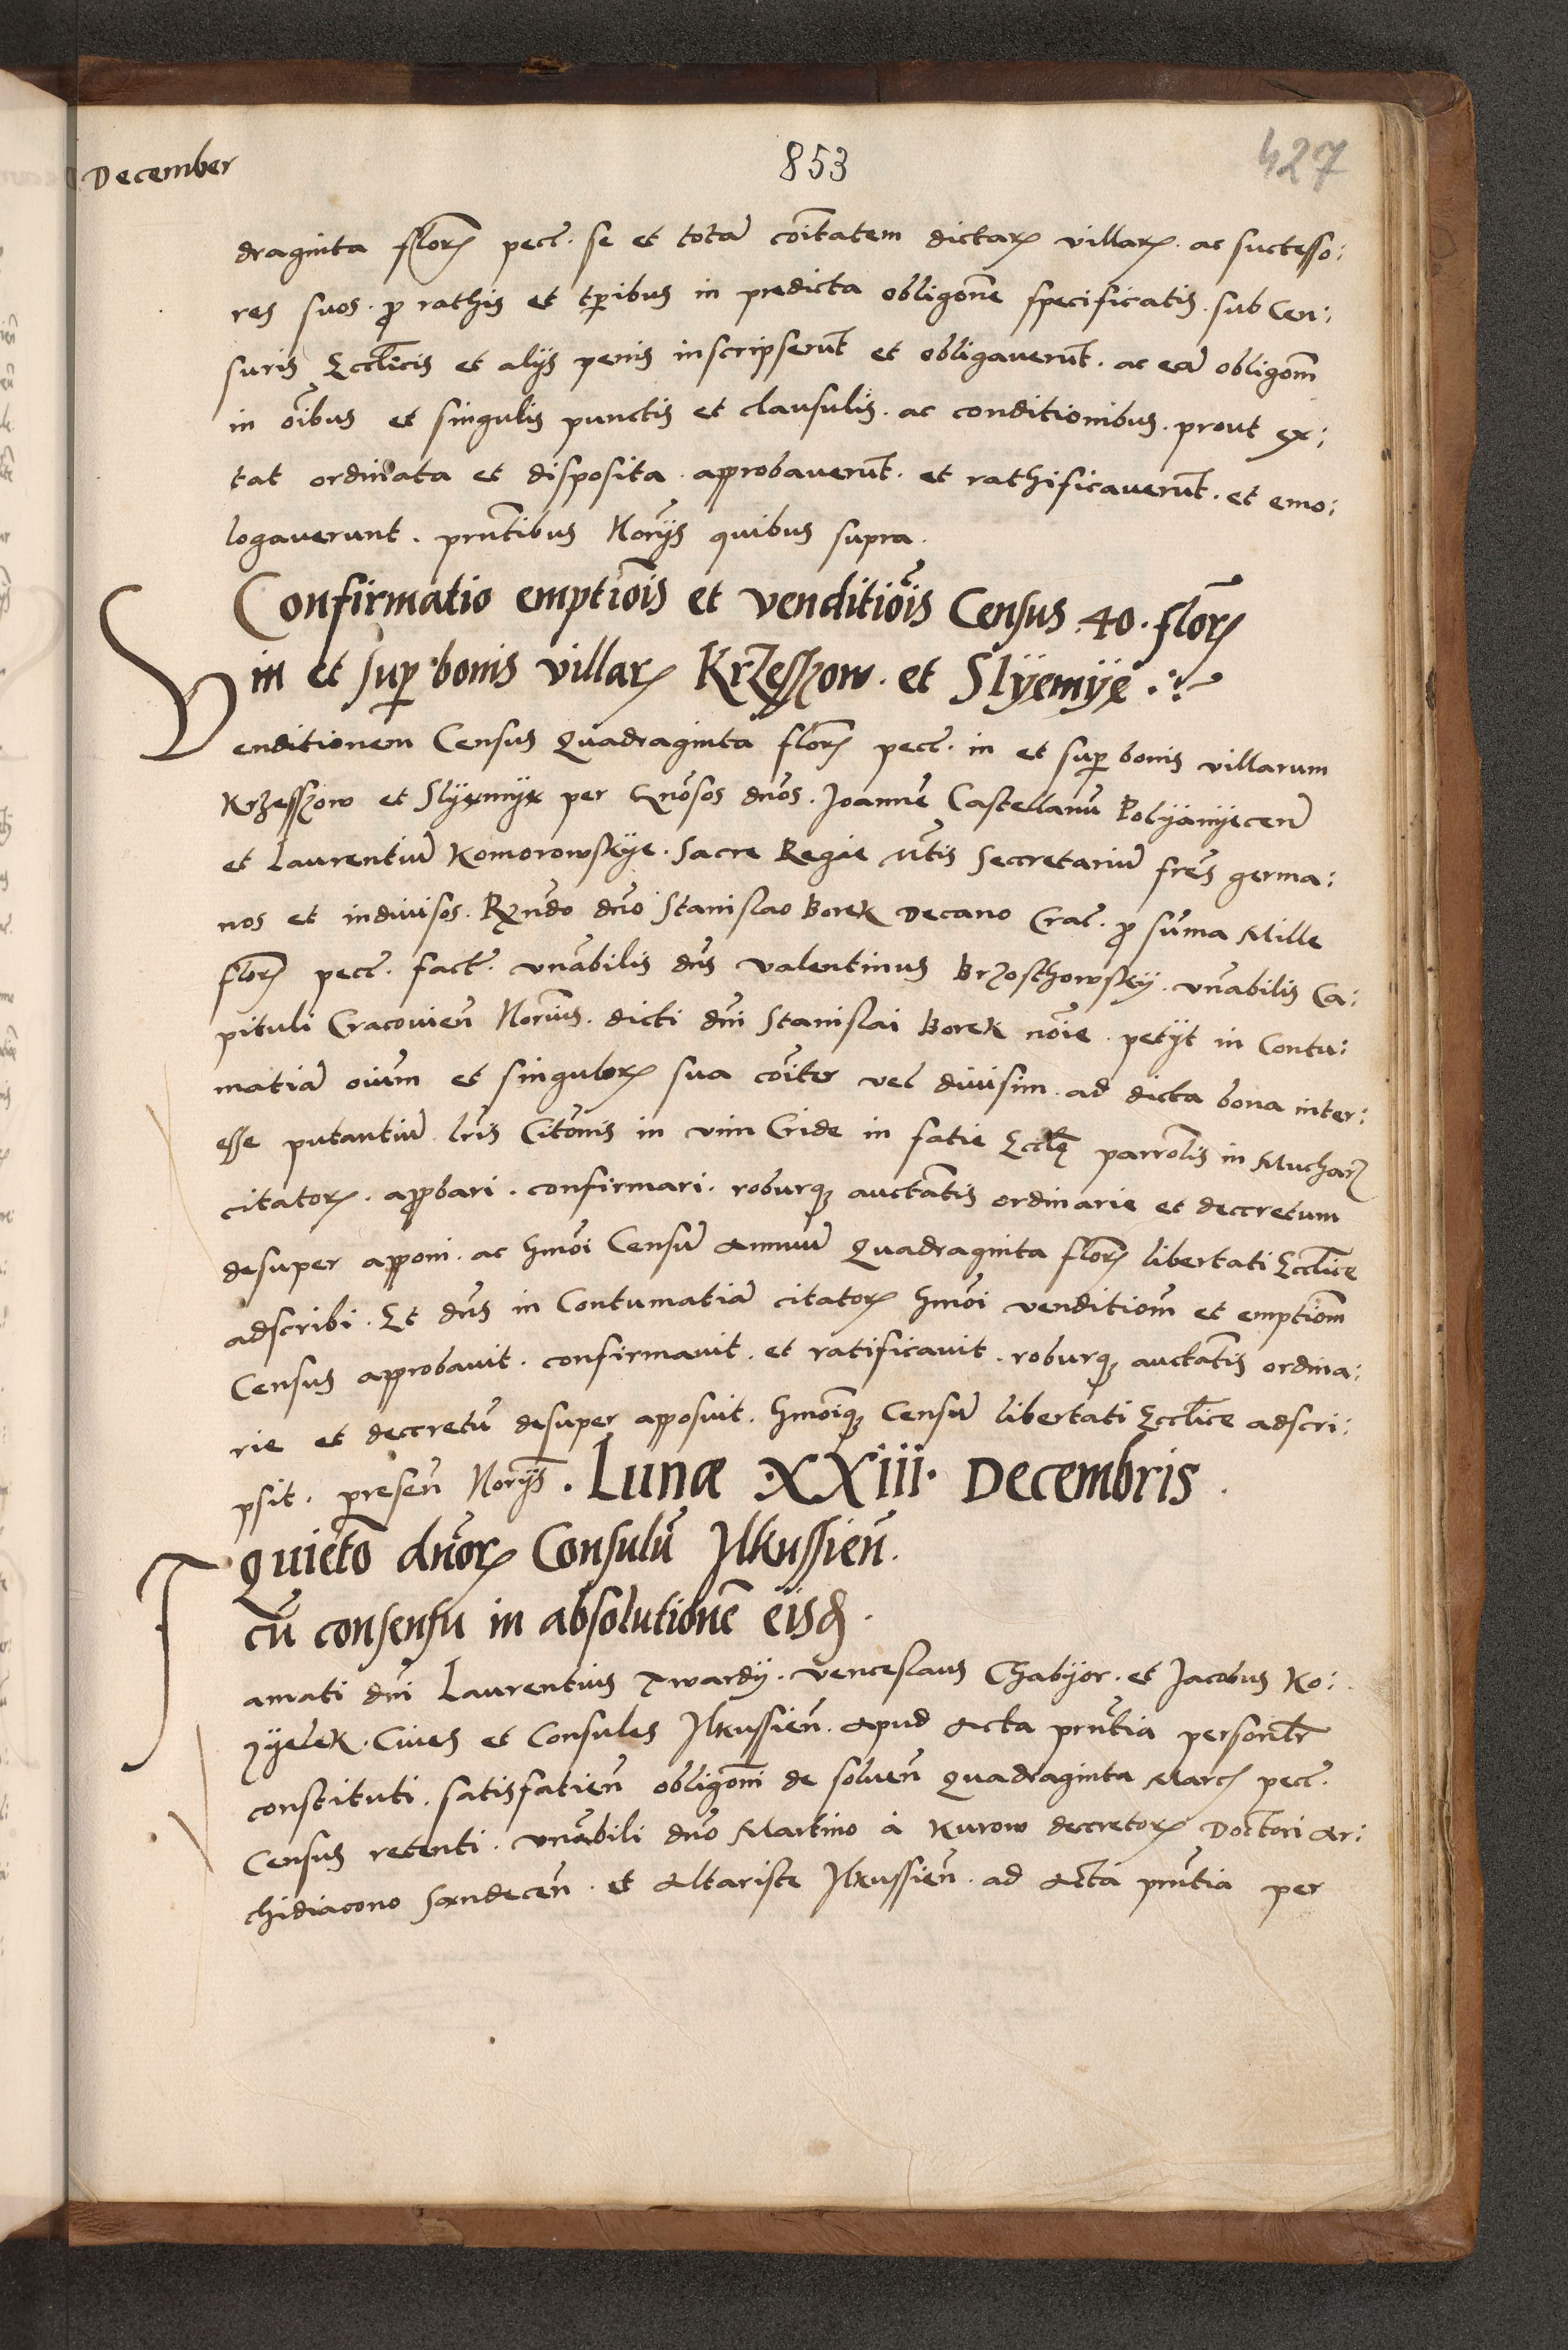 December
853
427
draginta floꝝ pecc̄. se et totā cōitatem dictaꝝ villaꝝ. ac successo:
res suos. ꝓ rathis et tp̄ribus in predicta obligōne specificatis. sub Cen:
suris Eccl̄icis et alijs penis inscripserūt et obligaverūt. ac eā obligōm
in oībus et singulis punctis et clausulis. ac conditionibus. prout ex:
tat ordinata et disposita. approbaverūt. et rathificaverūt. et emo:
logaverunt. pn̄tibus Nor̄ijs quibus supra.
Confirmatio emptiōis et venditiōis Census .40. floꝝ
in et suꝑ bonis villaꝝ Krzesschow. et Slyemye
Venditionem Census Quadraginta floꝝ pecc̄. in et suꝑ bonis villarum
Krzesschow et Slyemye per Gn̄osos dn̄os. Joannē Castellanū Polyanyecen̄
et Laurentiū Komorowskye. Sacre Regie Mt̄is Secretariū fr̄es germa:
nos et indivisos. Rn̄do dn̄o Stanislao Borek Decano Crac̄. ꝓ sum̄a Mille
floꝝ pecc̄. fact̄. vn̄abilis dn̄s Valentinus Brzosthowsky. vn̄abilis Ca:
pituli Cracovien̄ Nor̄ius. dicti dn̄i Stanislai Borek nōie. petijt in Contu:
matiā oium̄ et singuloꝝ sua cōiter vel divisim. ad dicta bona inter:
esse putantiū. lr̄is Citōnis in vim Cride in fatie Eccl̄ę parrōlis in Muchaꝝ
citatoꝝ. aꝓbari. confirmari. roburqꝫ auctātis ordinarie et decretum
desuper apponi. ac hm̄oi Censū Annuū Quadraginta floꝝ libertati Eccl̄ice
adscribi. Et dn̄s in Contumatiā citatoꝝ hm̄oi venditiōm et emptiōm
Census approbavit. confirmavit. et ratificavit. roburqꝫ auctātis ordina:
rie et decretū desuper apposuit. hm̄oiqꝫ Censū libertati Eccl̄ice adscri:
psit. presen̄ Nor̄ijs. Lunæ .XXiii. Decembris.
Quietō dn̄oꝝ Consulū Ilkussien̄.
cū consensu in absolutionē eisd̄.
Famati dn̄i Laurentius Twardy. Venceslaus Chabyor. et Jacobus Ko:
zyelek. Cives et Consules Ilkussien̄. Apud Acta pn̄tia personl̄r
constituti. satisfatien̄ obligōni de solven̄ Quadraginta Marcꝭ pecc̄.
Census retenti. vn̄abili dn̄o Martino à Kurow decretoꝝ Doctori Ar:
chidiacono Sandecen̄. et Altariste Ilkussien̄. ad Acta pn̄tia per